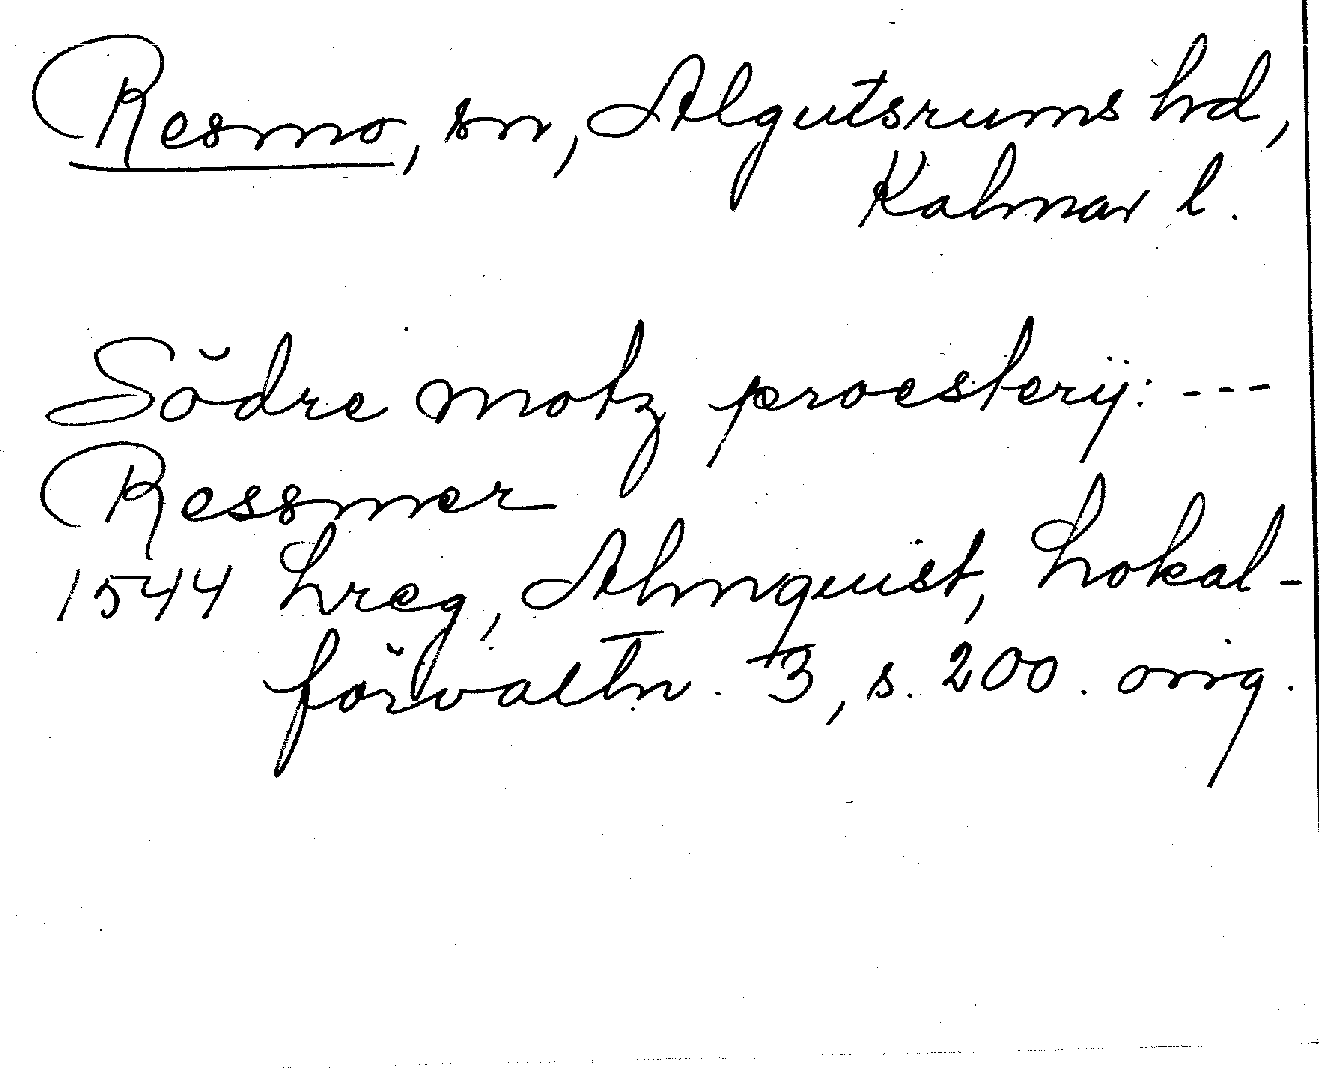 Resmo, sn, Algutsrums hd,
Kalmar l.
Södre motz proesterij: ---
Ressmer
1544 hreg, Almquist, Lokal-
förvaltn. 3, s. 200. orig.